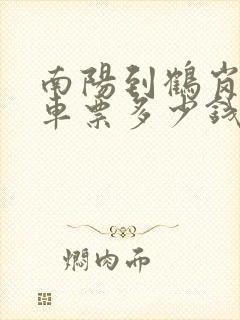 南陽到鶴崗
車票多少錢
燜肉而